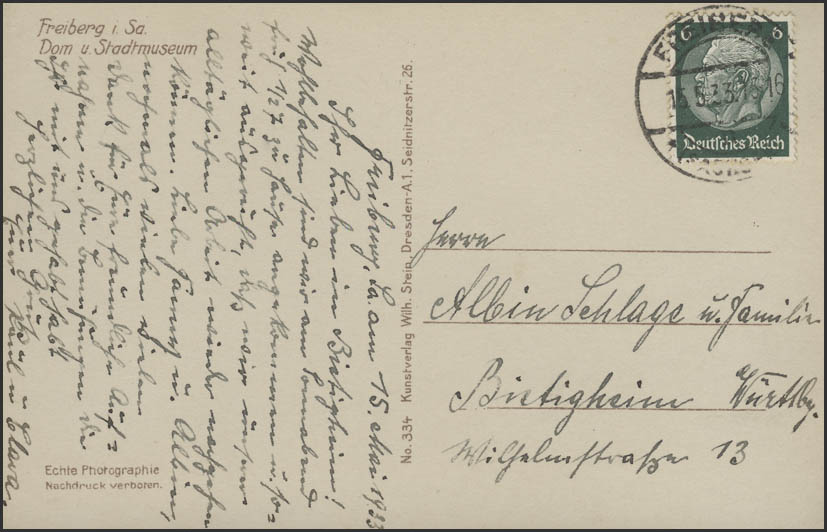 Freiberg i. Sa.
Dom u. Stadtmuseum
Freiberg, Sa. am 15. Mai 1933
Ihr Lieben in Bietigheim!
Wohlbehalten sind wir am Sonnabend
früh 1/2 7 zu Hause angekommen u. so-
weit ausgeruht, daß wir unserer
alltäglichen Arbeit wieder nachgehen
können. Liebe Fanny u. Albin,
nochmals vielen vielen
Dank für Eure freundliche Auf=
nahme u. die Bemühungen die
Ihr mit uns gehabt habt
Herzlichen Gruß
Euer Paul u. Clara.
Echte Photographie
Nachdruck verboten.
No. 334 Kunstverlag Wilh. Stein, Dresden-A.1, Seidnitzerstr. 26.
6 6
Deutsches Reich
15.5.33
Herrn
Albin Schlage u. Familie
Bietigheim Württbg.
Wilhelmstraße 13